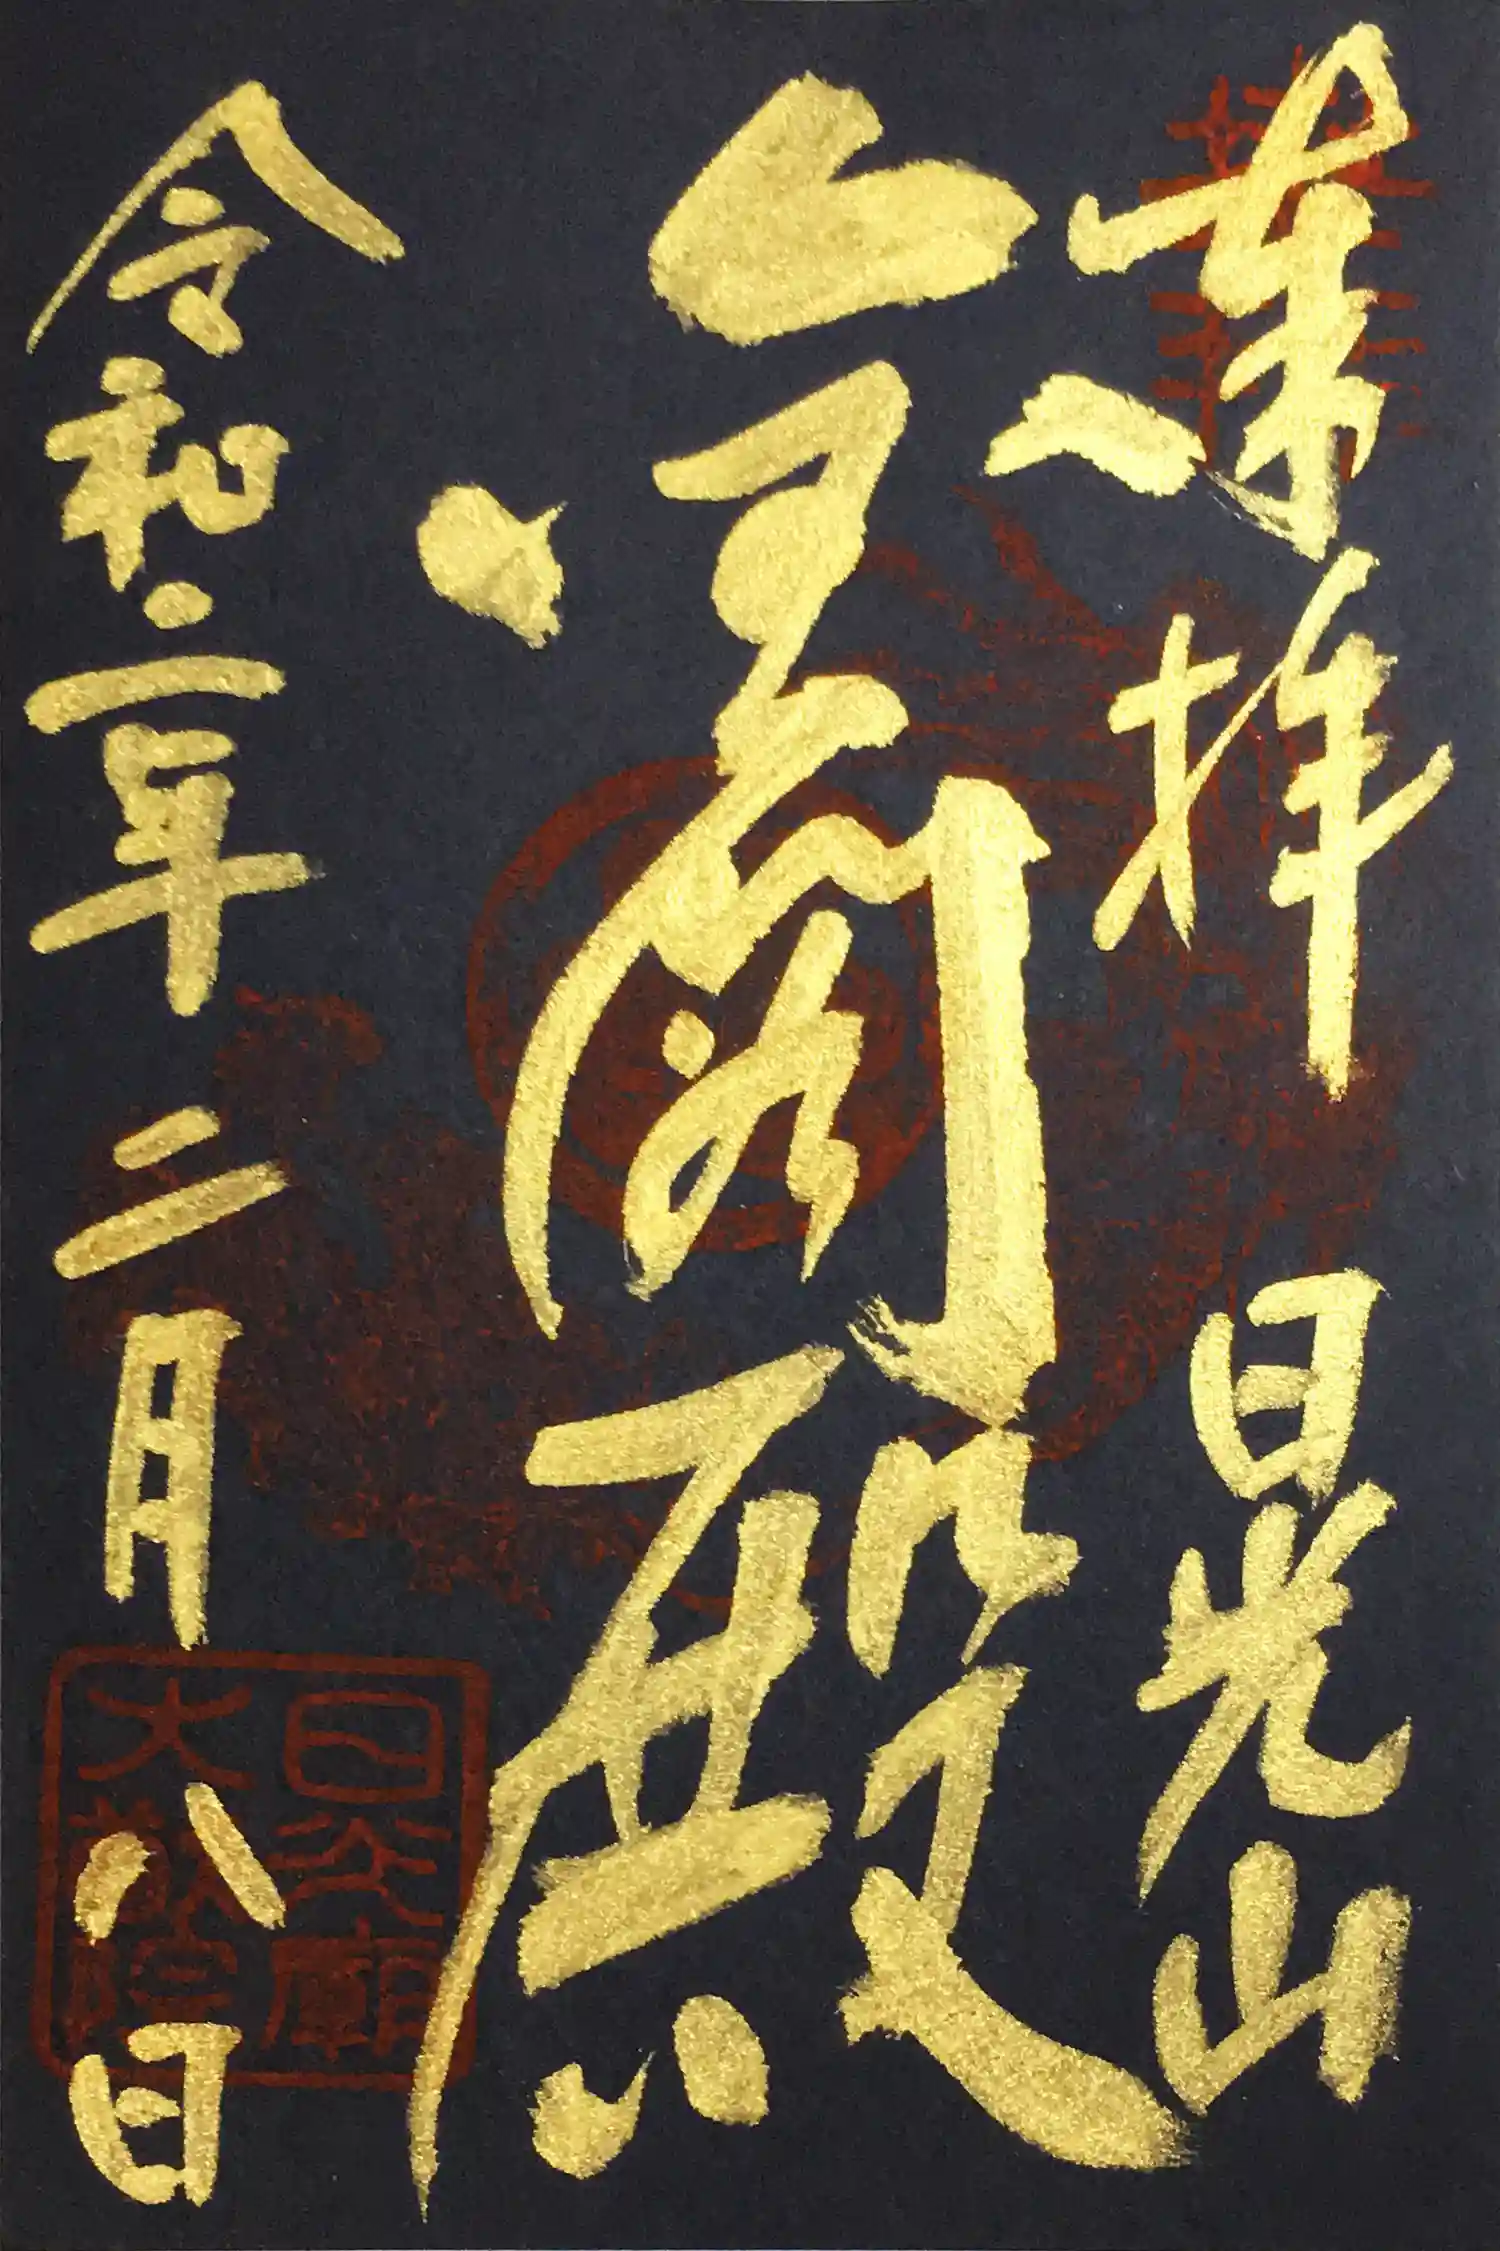 奉拝 日光山
殿
令和二年二月八日
日光廟
大猷院